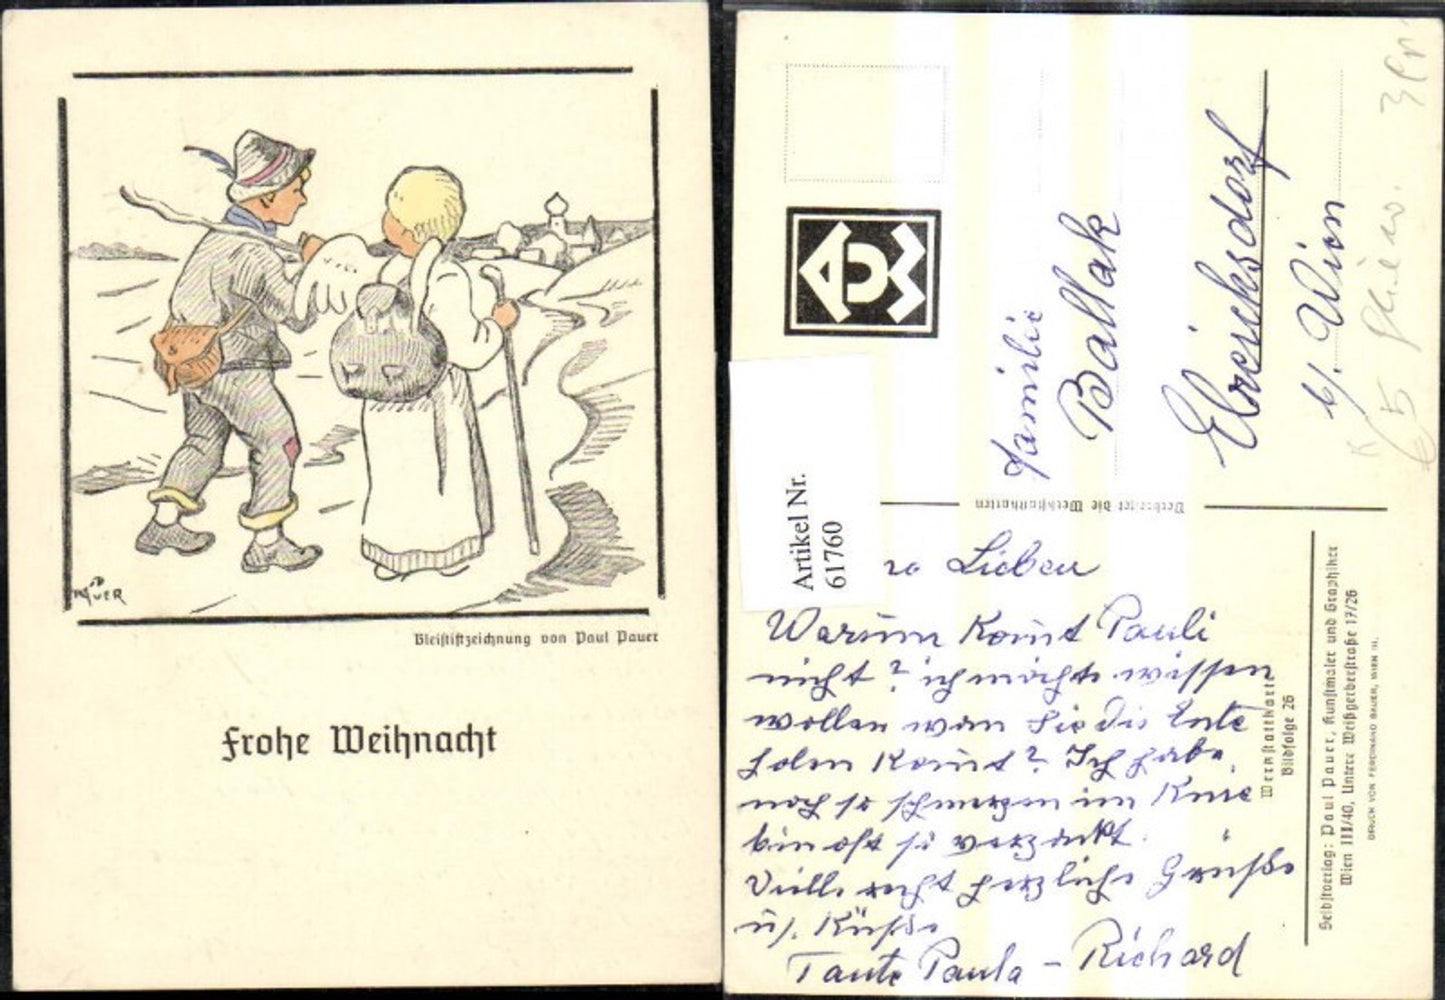 PAUER
Bleistiftzeichnung von Paul Pauer
Frohe Weihnacht
Artikel Nr.
61760
Familie
Ballak
Ebreichsdorf
b/. Wien
Verbreitet die Werkstattkarten
Lieben
Warum komt Pauli
nicht? ich möchte wissen
wollen wan Sie die Ente
holen komt? Ich habe
noch so schmerzen im Knie
bin oft so verzackt.
Viele recht herzliche Grüsse
u/. Küsse
Tante Paula - Richard
Werkstattkarte
Bildfolge 26
Selbstverlag: Paul Pauer, Kunstmaler und Graphiker
Wien III/40, Untere Weißgerberstraße 17/26
DRUCK VON FERDINAND BAUER, WIEN III.